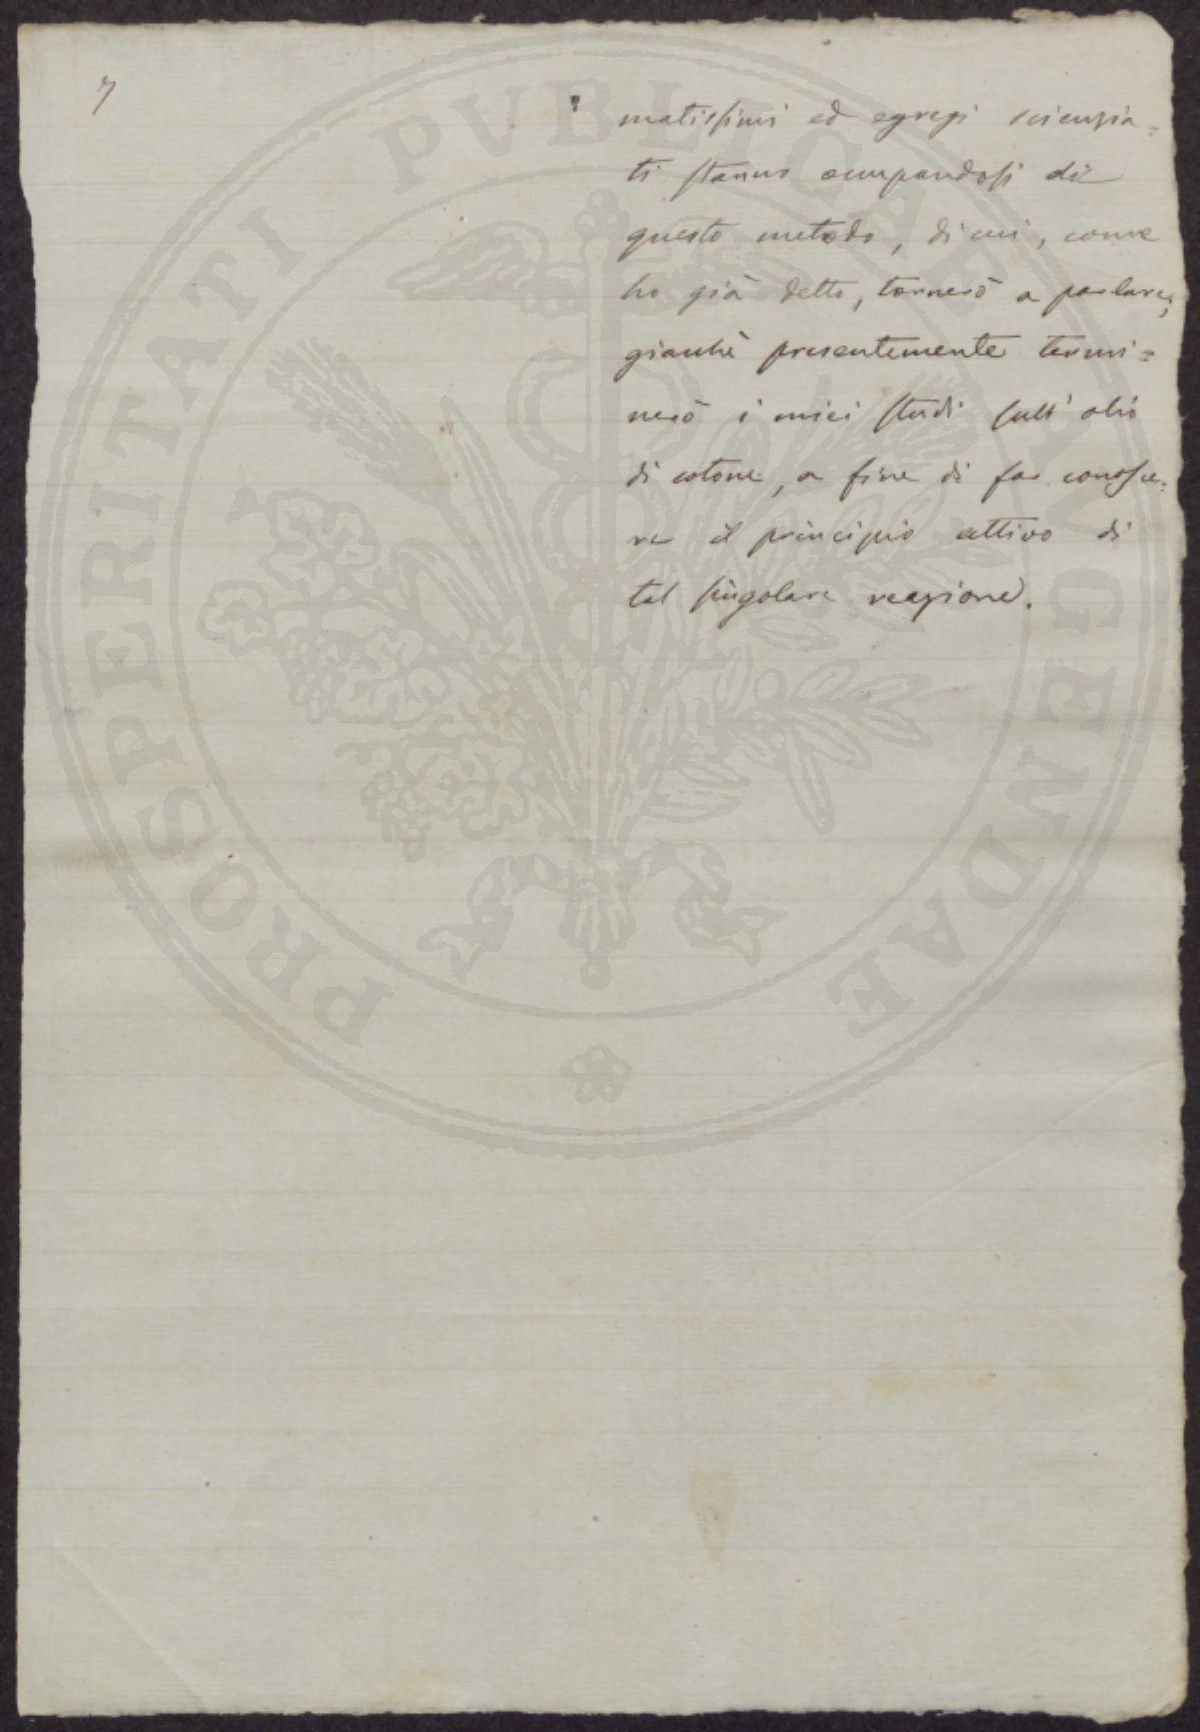 7
matissimi ed egregi scienzia=
ti stanno occupandosi di
questo metodo, di cui, come
ho già detto, tornerò a parlare;
giacchè presentemente termi=
nerò i miei studi sull'olio
di cotone, a fine di far conosce=
re il principio attivo di
tal singolare reazione.
PROSPERITATI PVBLICAE AVGENDAE